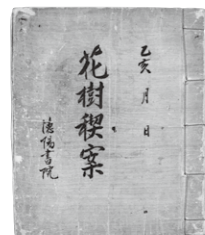 乙亥 月 日
花樹稧案
德陽書院